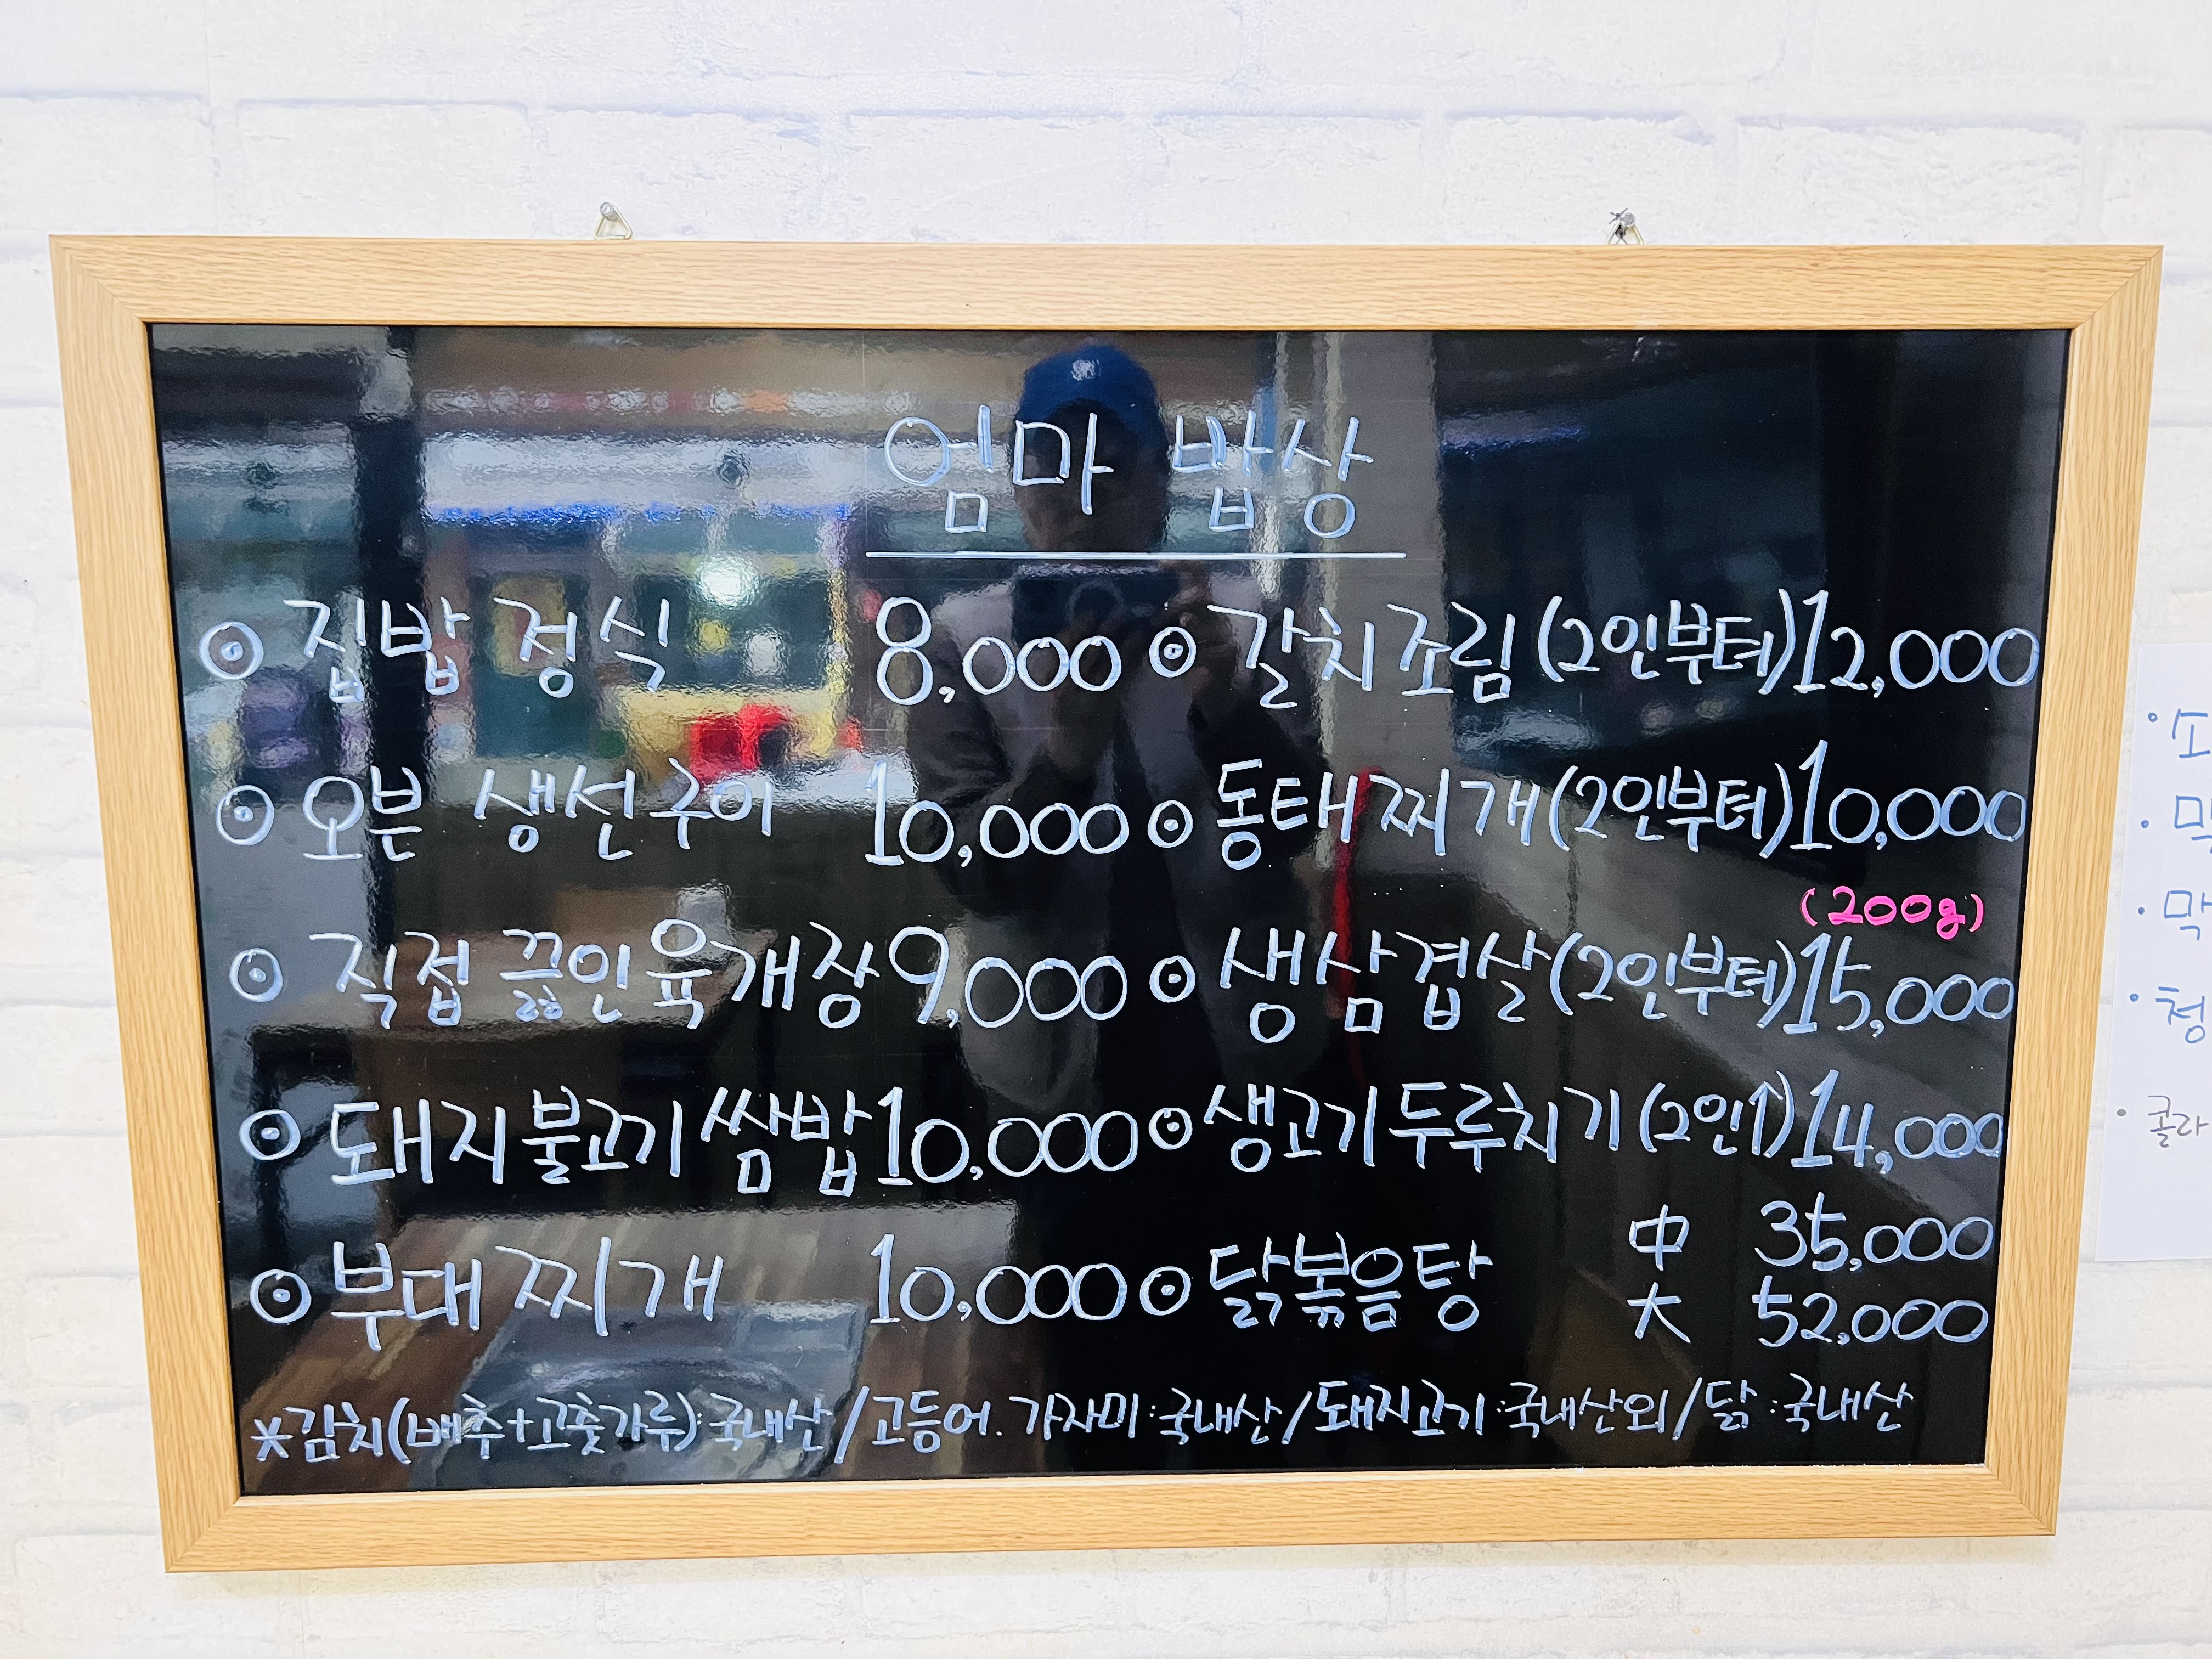 엄마 밥상
⊙ 집밥 정식 8,000
⊙ 오븐 생선구이 10,000
⊙ 직접 끓인 육개장 9,000
⊙ 돼지불고기 쌈밥 10,000
⊙ 부대찌개 10,000
⊙ 갈치조림(2인부터) 12,000
⊙ 동태찌개(2인부터) 10,000
(200g)
⊙ 생삼겹살(2인부터) 15,000
⊙ 생고기두루치기(2인1) 14,000
⊙ 닭볶음탕 中 35,000
大 52,000
*김치(배추+고춧가루):국내산/고등어.가자미:국내산/돼지고기:국내산외/닭:국내산
콜라